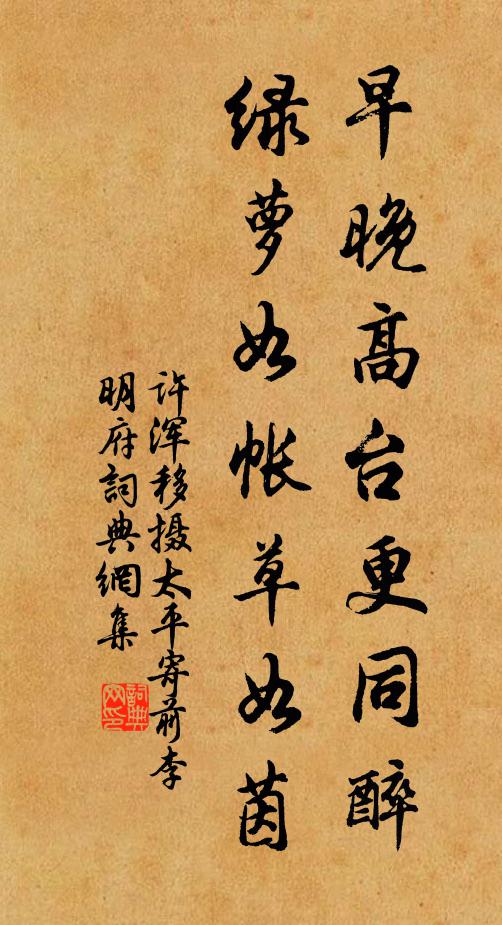 早晚高台更同醉
绿萝如帐草如茵
许浑移摄太平寄前李
明府词典網集
詞典
网印